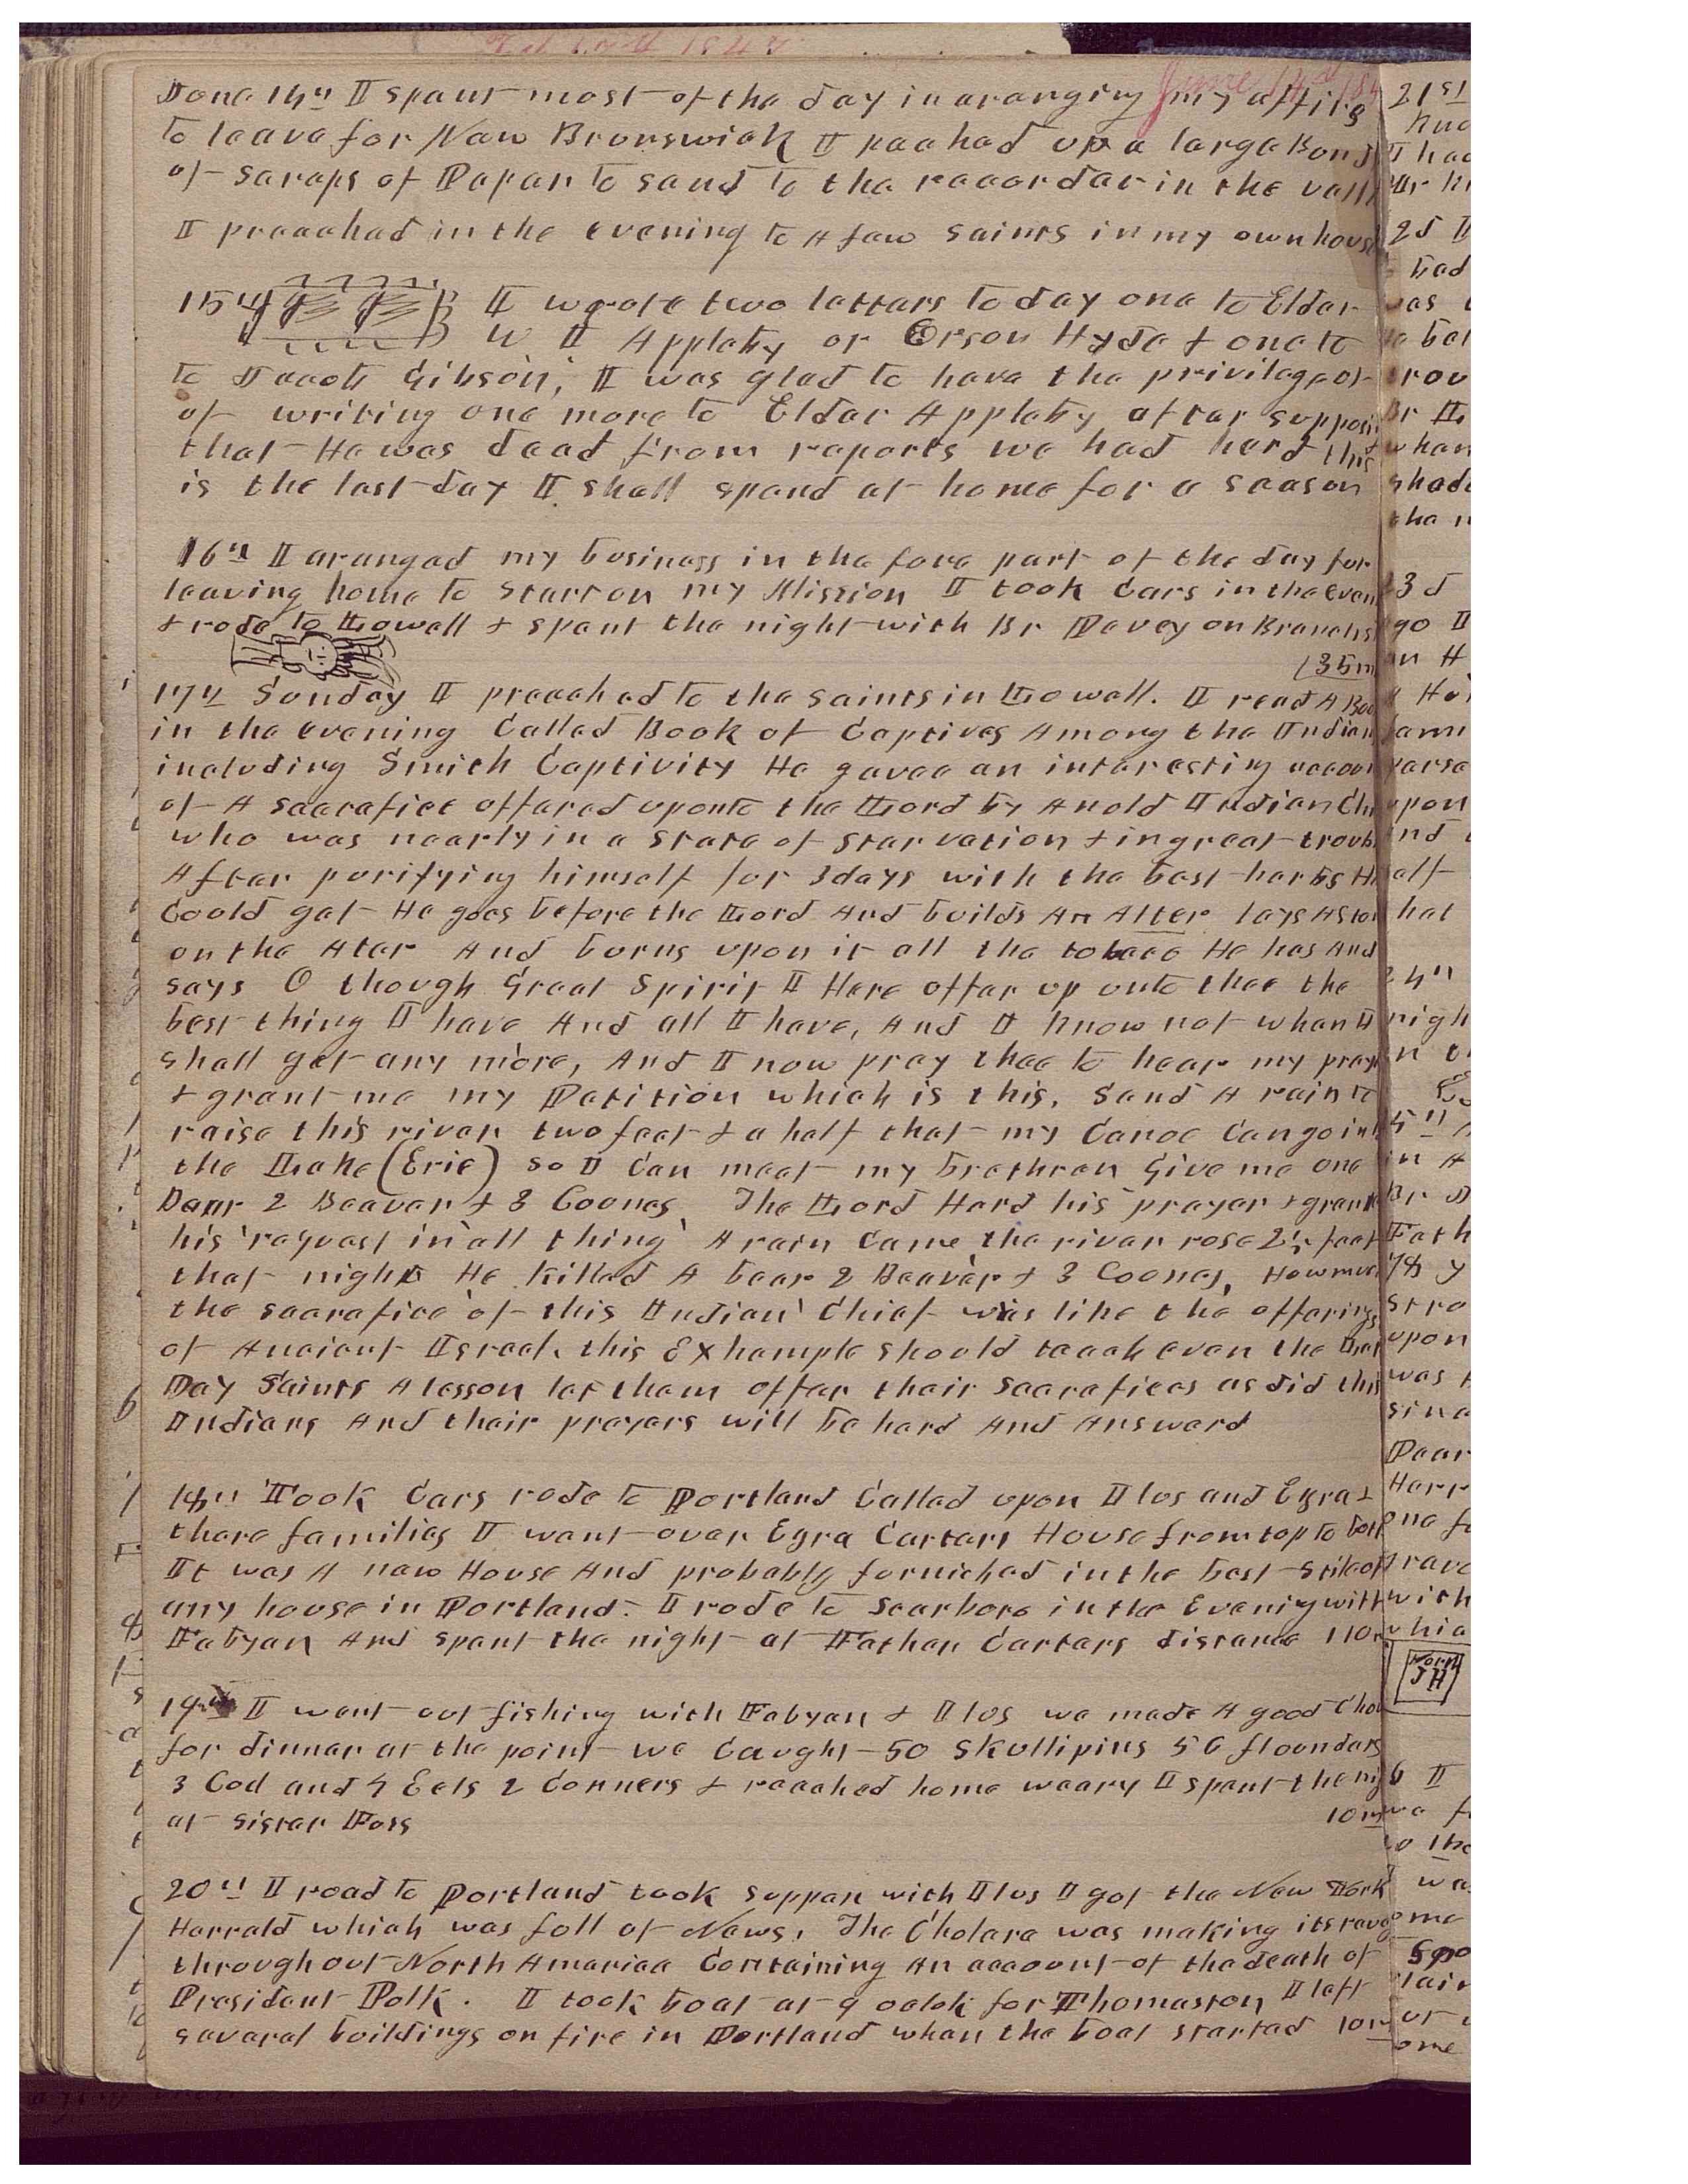 June 14th 184
June 14th I spent most of the day in aranging my affairs
to leave for New Brunswick I packed up a large Bond
of scraps of Paper to send to the recorder in the vally
I preached in the evening to A few Saints in my own house
15th I wrote two letters to day one to Elder
W I Appleby or Orson Hyde & one to
to Jacob Gibson, I was glad to have the privilege of
of writing one more to Elder Appleby after supposing
that He was dead from reports we had herd this
is the last day I shall spend at home for a season
16th I aranged my business in the fore part of the day for
leaving home to start on my Mission I took cars in the even
& rode to Lowell & spent the night with Br Povey on Branch st
35m
17th Sunday I preached to the saints in Lowell. I read A Boo
in the evening Called Book of Captives Among the Indian
including Smith Captivity He gavee an interesting accoun
of A sacrafice offered uponto the Lord by An old Indian Ch
who was nearly in a state of starvation & in great troubl
After purifying himself for 3 days with the best harbs He
Could get He goes before the Lord And builds An Alter lays A ston
on the Atar And burns upon it all the tobaco He has And
says O though Great Spirit I Here offer up unto thee the
best thing I have And all I have, And I know not when I
shall get any more, And I now pray thee to hear my pray
& grant me my Petition which is this. Send A rain to
raise this river two feet & a half that my Canoe Can go int
the Lake (Erie) so I Can meet my brethren Give me one
Bear 2 Beaver & 3 Coones The Lord Herd his prayer & grant
his request in all thing A rain Came the river rose 2½ feet
that night He killed A bear 2 Beaver & 3 Coones, Howmuch
the sacrafice of this Indian Chief was like the offerings
of Ancient Israel. this Exhample should teach even the Lat
Day Saints A lesson let them offer their sacrafices as did this
Indians And their prayers will be herd And Answerd
18th Took Cars rode to Portland Called upon Ilus and Ezra &
there families I went over Ezra Carters House from top to bott
It was A new House And probably furnished in the best stile of
any house in Portland. I rode to Scarboro in the Evening with
Fabyan And spent the night at Father Carters distance 110m
19th I went out fishing with Fabyan & Ilus we made A good Cho
for dinner at the point we Caught 50 Skullipins 56 flounders
3 Cod and 4 Eels 2 Conners & reached home weary I spent the ni
at Sister Foss 10m
20th I road to Portland took supper with Ilus I got the New York
Harrald which was full of News, The Cholera was making its ravag
throughout North America Containing An account of the death of
President Polk. I took boat at 9 oclok for Thomaston I left
several buildings on fire in Portland when the boat started 10m
21st
I had
2d I
had
was
Br
when
3d
go I
an A
upon
24th
nigh
in
upon
was
Harr
with
North
JH
6 I